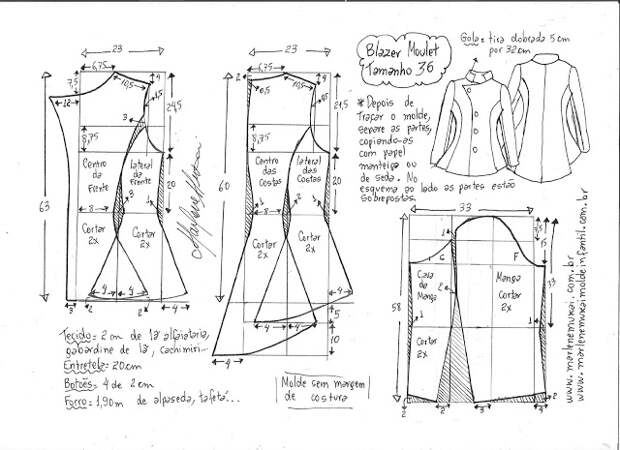 Blazer Moulet
Tamanho 36
Gola = tira dobrada 5cm
por 32cm
* Depois de
traçar o molde,
separe as partes,
copiando-as
com papel
manteiga ou
de seda. No
esquema ao lado as partes estão
sobrepostas.
23
6,75
7,5
4
10,5
12
1,5
24,5
3
8,75
63
Centro
da
Frente
lateral
da
Frente
20
3
1
8
Cortar
2x
Cortar
2x
4
4
4
3
2
2
23
2
6,75
4
0,5
10,5
21,5
8,75
60
Centro
das
Costas
lateral
das
Costas
20
2
1
3
1
8
Cortar
2x
Cortar
2x
4
4
4
4
5
10
33
4,5
15
1
1
C
F
58
Capa
da
Manga
Manga
Cortar
2x
2
1
1
33
Cortar
2x
2
2
2
3
3
2
Tecido = 2 cm de lã alfaiataria,
gabardine de lã, cachimiri...
Entretela = 20cm
Botões = 4 de 2cm
Forro = 1,90m de alpaseda, tafetá...
Molde sem margem
de costura
www.marlenemukai.com.br
www.marlenemukaimoldeinfantil.com.br